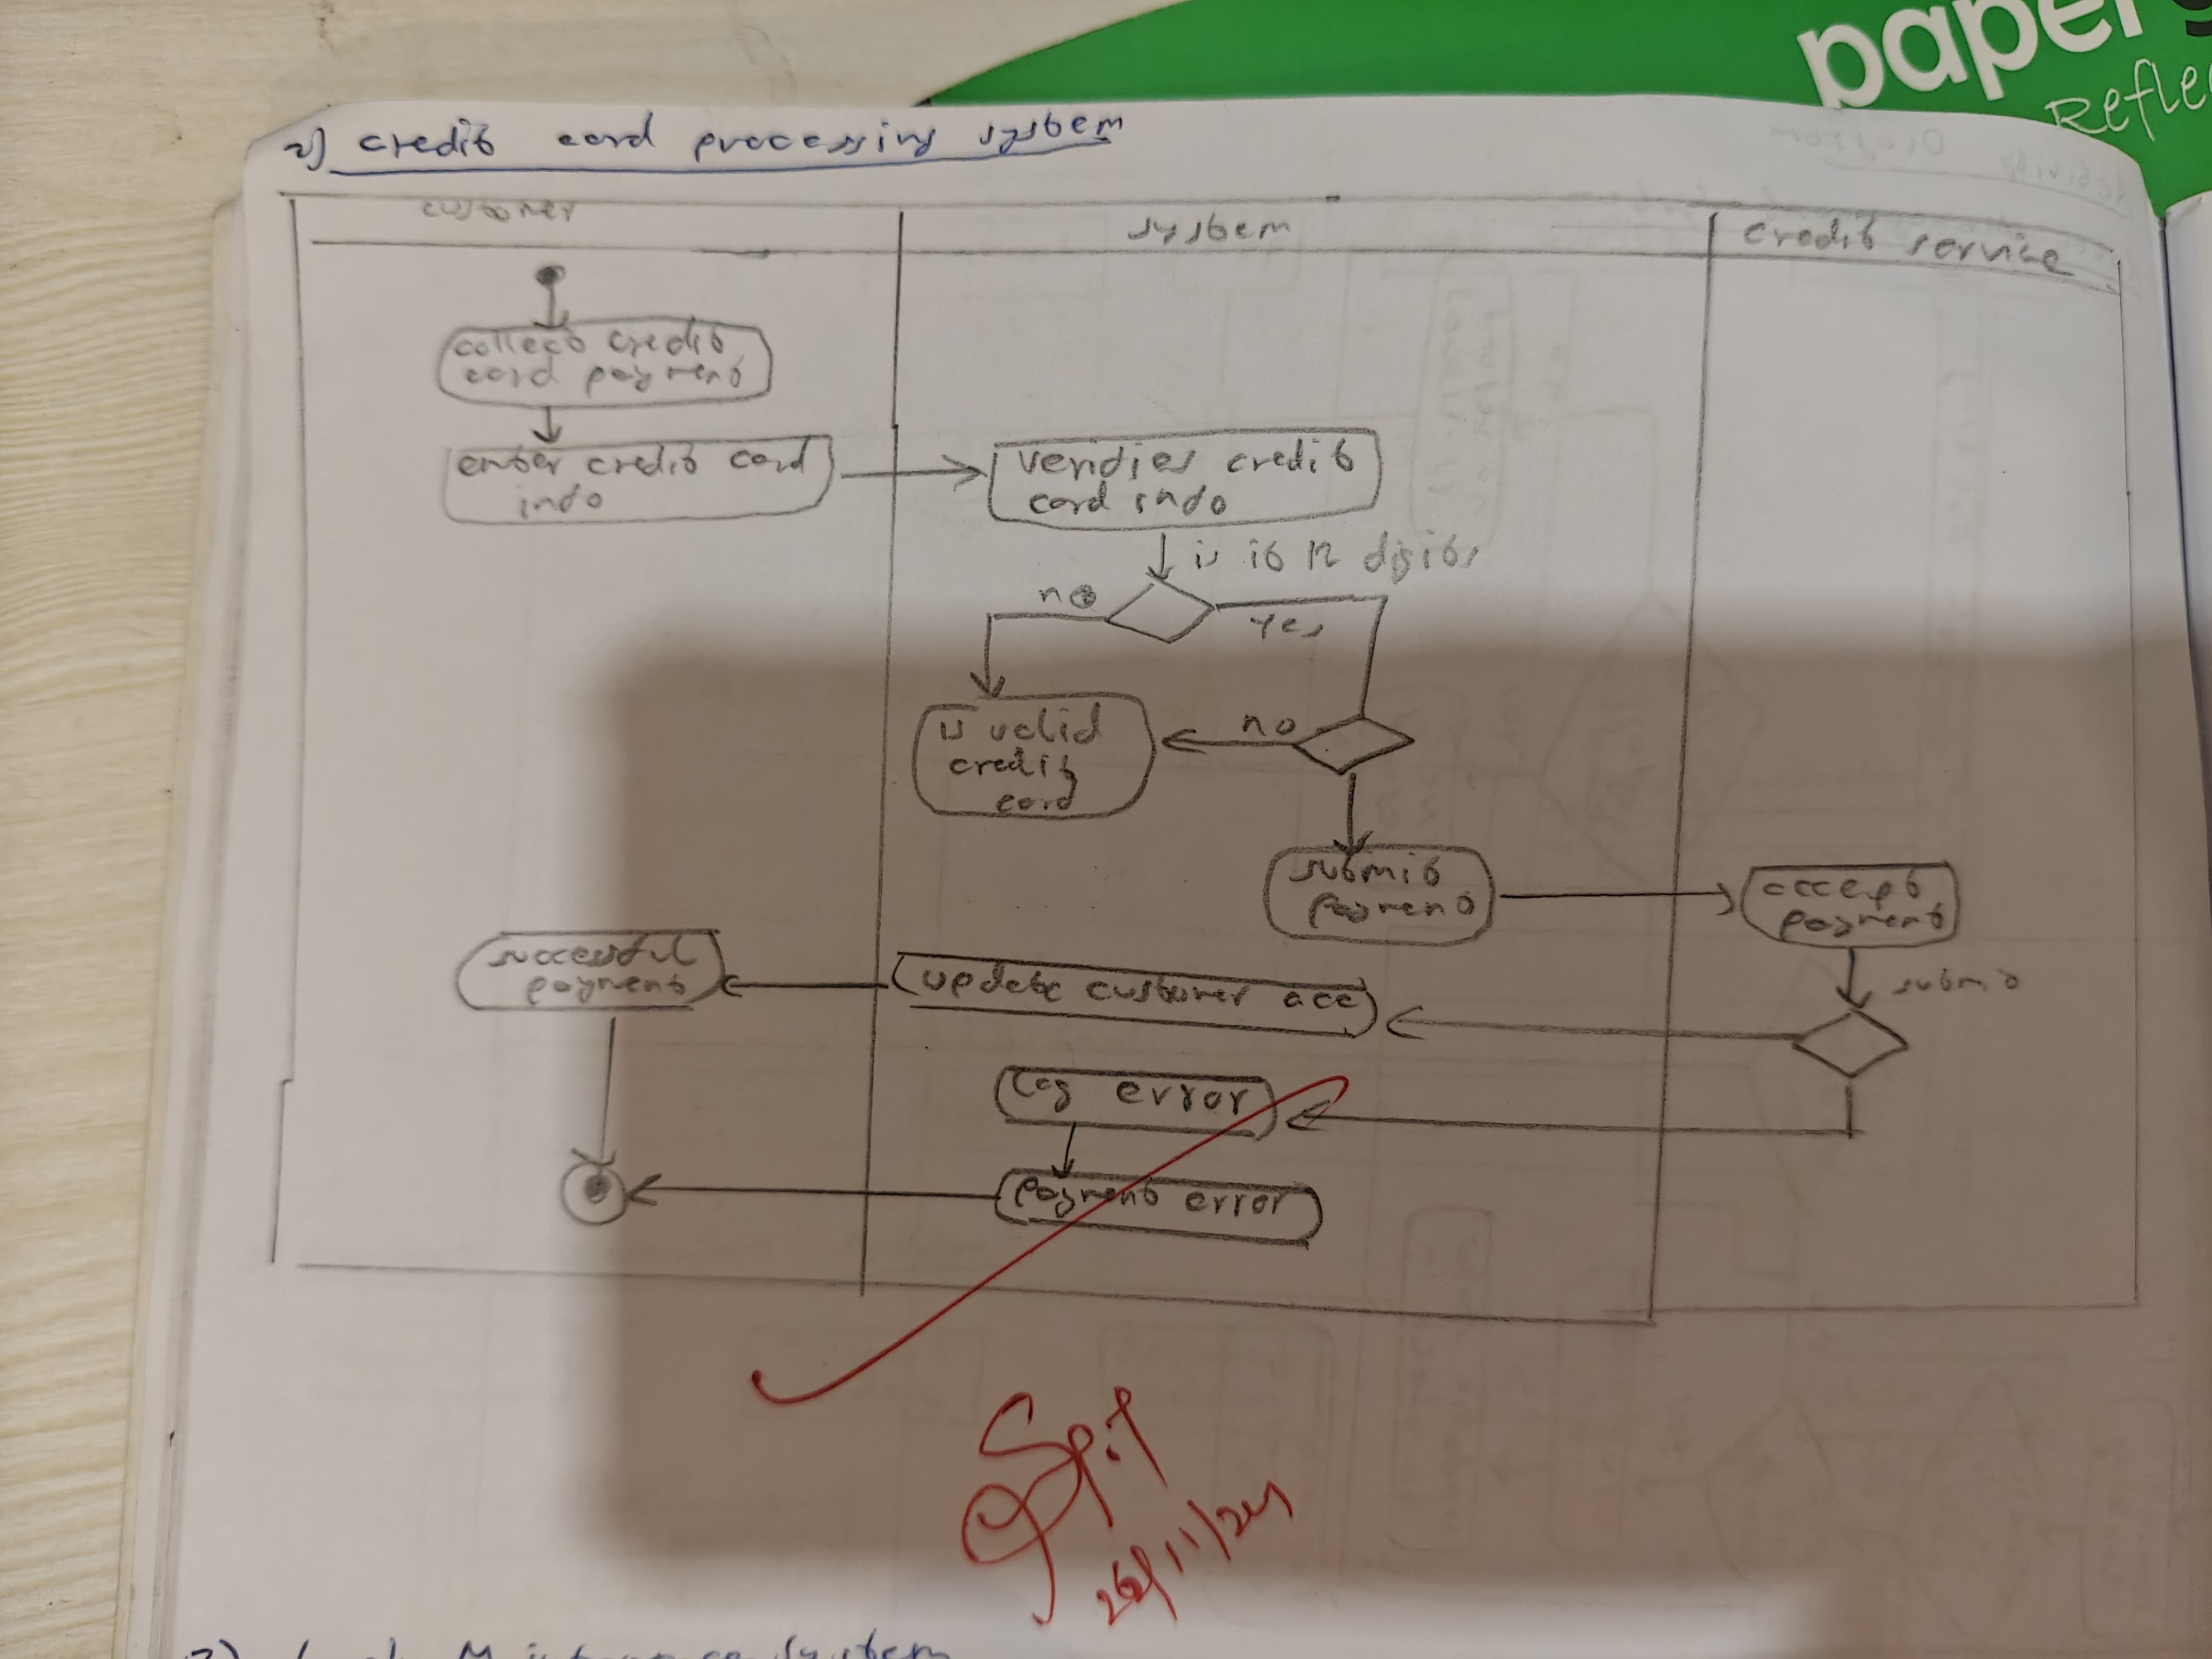 paper
Refle
2) credit card processing system
customer
system
credit service
collect credit
card payment
enter credit card
info
verifies credit
card info
is it 12 digits
no
Yes
is valid
credit
card
no
submit
payment
accept
payment
submit
successful
payment
update customer acc
log error
payment error
26/11/24
system